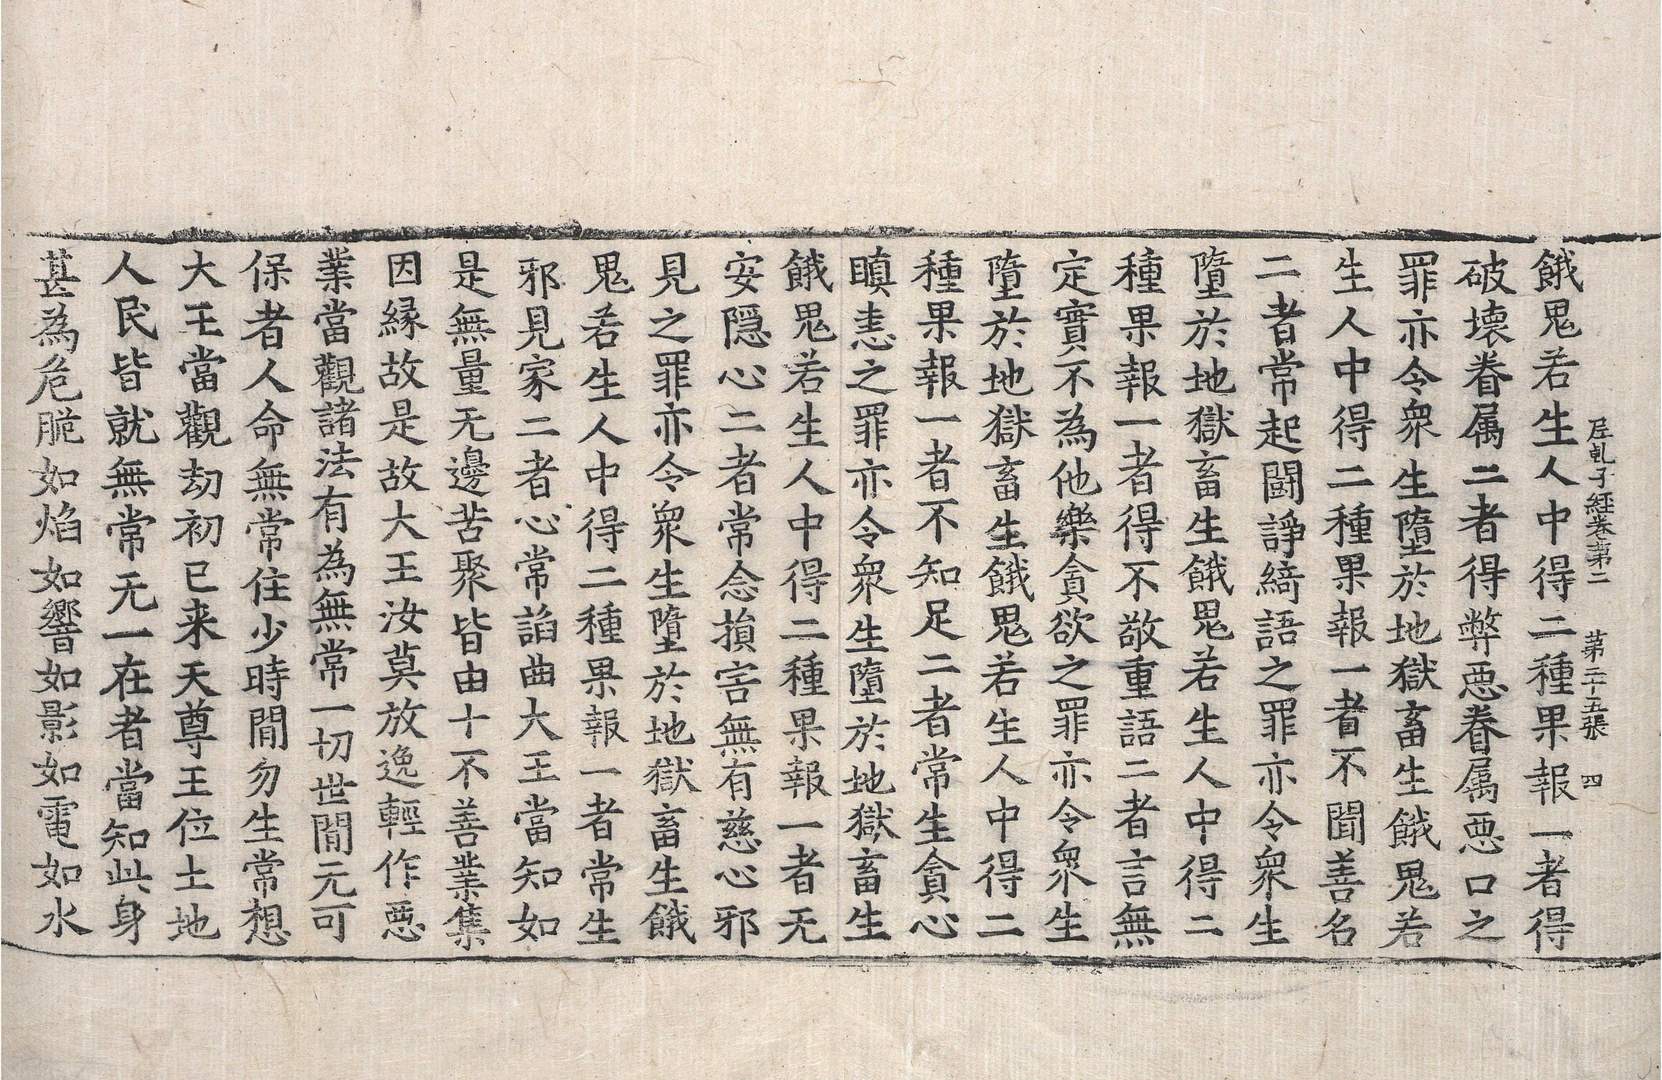 餓鬼若生人中得二種果報一者得
破壞眷属二者得弊惡眷属惡口之
罪亦令衆生墮於地獄畜生餓鬼若
生人中得二種果報一者不聞善名
二者常起鬪諍綺語之罪亦令衆生
墮於地獄畜生餓鬼若生人中得二
種果報一者得不敬重語二者言無
定實不為他樂貪欲之罪亦令衆生
墮於地獄畜生餓鬼若生人中得二
種果報一者不知足二者常生貪心
瞋恚之罪亦令衆生墮於地獄畜生
餓鬼若生人中得二種果報一者无
安隱心二者常念損害無有慈心邪
見之罪亦令衆生墮於地獄畜生餓
鬼若生人中得二種果報一者常生
邪見家二者心常諂曲大王當知如
是無量无邊苦聚皆由十不善業集
因緣故是故大王汝莫放逸輕作惡
業當觀諸法有為無常一切世間元可
保者人命無常住少時間勿生常想
大王當觀劫初已来天尊王位土地
人民皆就無常无一在者當知此身
甚為危脆如焰如響如影如電如水
尼乹子經卷第二 第二十五張 四